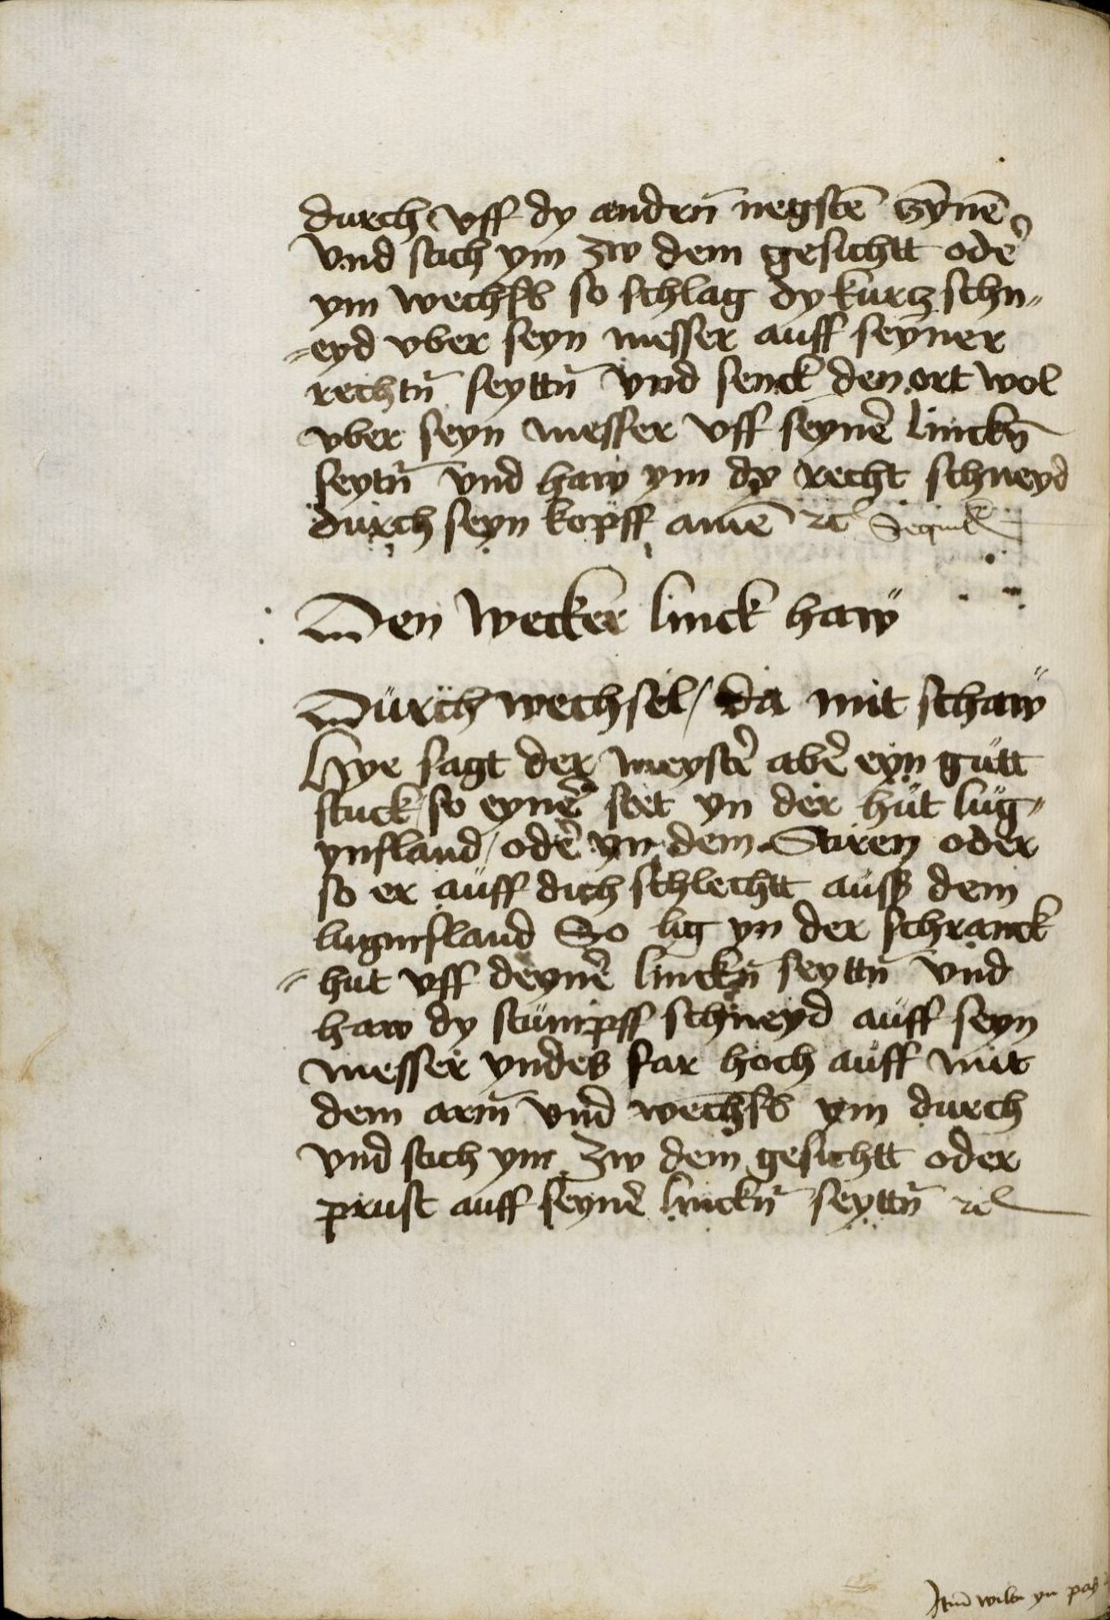 durch vff dy andrñ negstē zynē
vnd stich ym zw dem gesichtt oder
ym wechsß so schlag dy kurtz schn„
„eyd vber seyn messer auff seyner
rechtñ seyttñ vnd senck den ort wol
vber seyn messer vff seynē linckñ
seytñ vnd haw ym dy recht schneyd
durch seyn kopff amē ꝛc
Den wecker linck haẅ
Dürch wechsel / da mit schaẅ
Hye sagt der meyster aber eyn gütt
stuck / so eyner stet yn der hüt lüg„
ynsland / oder yn dem Stiren oder
so er aüff dich schlechtt auß dem
luginsland So lig yn der schranck
„hut vff deyner linckñ seyttñ vnd
haw dy stümpff schneyd aüff seyn
messer yndes far hoch aüff mit
dem arm̄ vnd wechsß ym durch
vnd stich ym zw dem gesichtt oder
prust auff seyner linckñ seyttñ ꝛc